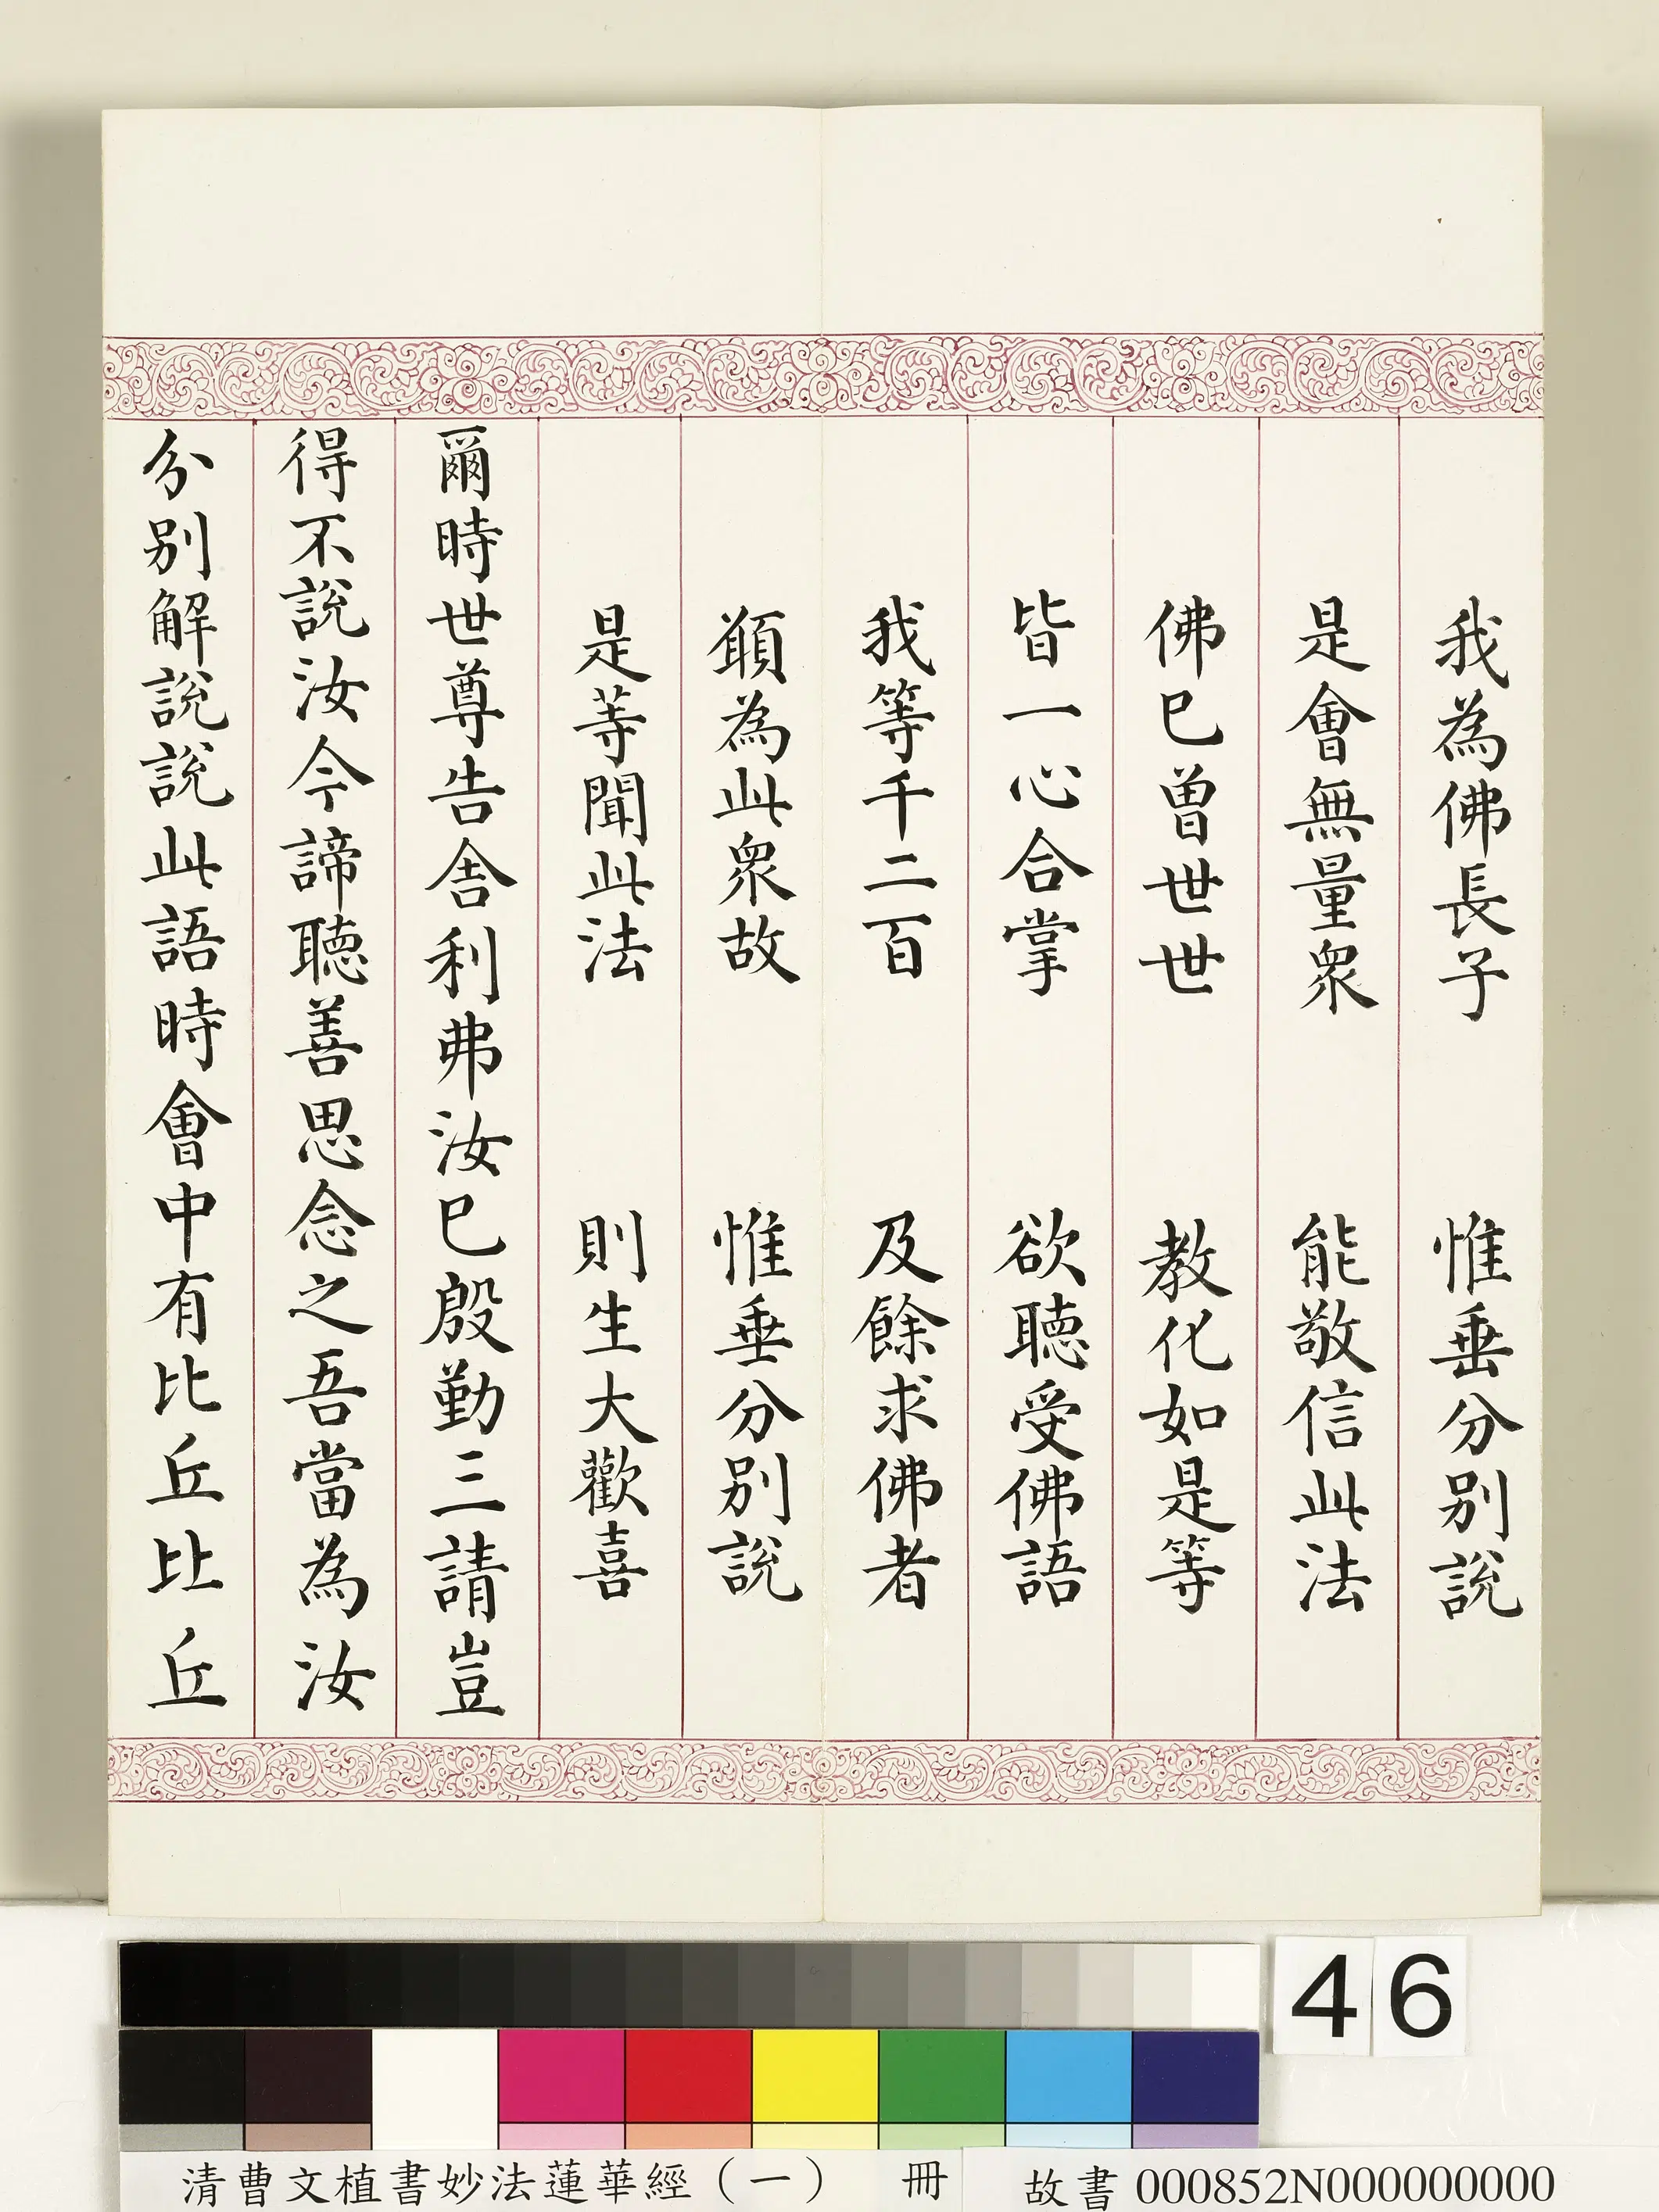 我為佛長子　惟垂分別說
是會無量眾　能敬信此法
佛已曾世世　教化如是等
皆一心合掌　欲聽受佛語
我等千二百　及餘求佛者
願為此眾故　惟垂分別說
是等聞此法　則生大歡喜
爾時世尊告舍利弗汝已殷勤三請豈
得不說汝今諦聽善思念之吾當為汝
分別解說說此語時會中有比丘比丘
46
清曹文植書妙法蓮華經（一）　冊
故書000852N000000000